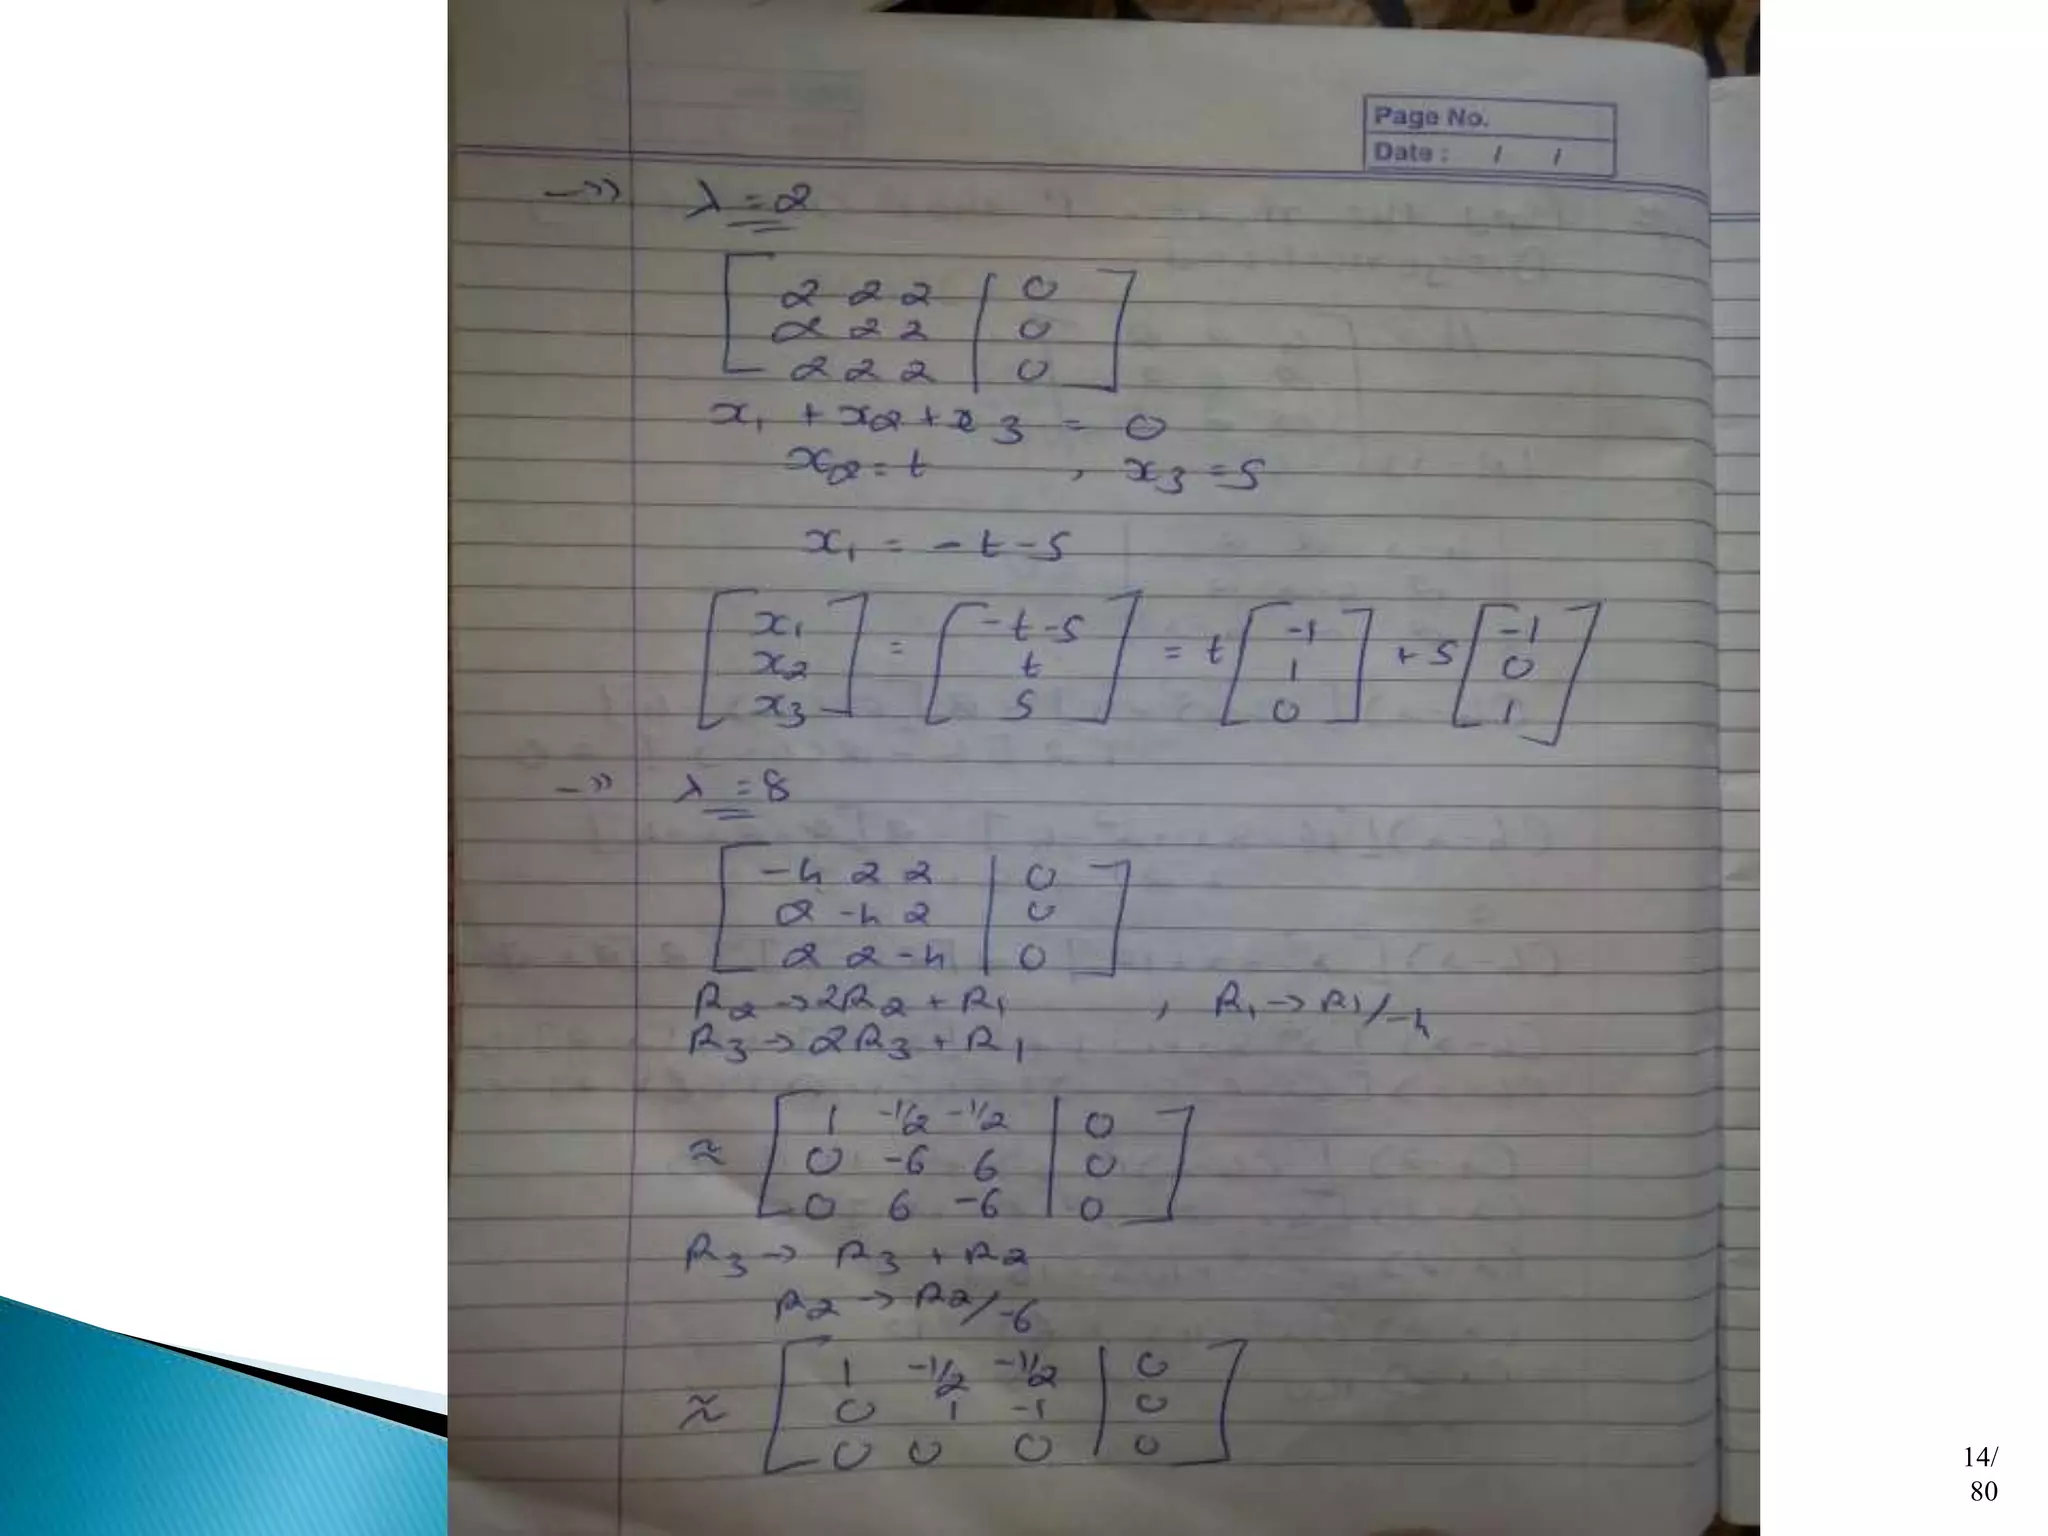 Page No.
Date : / /
→» λ = 2
[ 2 2 2 | 0 ]
[ 2 2 2 | 0 ]
[ 2 2 2 | 0 ]
x₁ + x₂ + x₃ = 0
x₂ = t , x₃ = s
x₁ = -t-s
[ x₁ ] [ -t-s ] [ -1 ] [ -1 ]
[ x₂ ] = [ t ] = t [ 1 ] + s [ 0 ]
[ x₃ ] [ s ] [ 0 ] [ 1 ]
→» λ = 8
[ -4 2 2 | 0 ]
[ 2 -4 2 | 0 ]
[ 2 2 -4 | 0 ]
R₂ → 2R₂ + R₁ , R₁ → R₁/-4
R₃ → 2R₃ + R₁
[ 1 -1/2 -1/2 | 0 ]
≈ [ 0 -6 6 | 0 ]
[ 0 6 -6 | 0 ]
R₃ → R₃ + R₂
R₂ → R₂/-6
[ 1 -1/2 -1/2 | 0 ]
≈ [ 0 1 -1 | 0 ]
[ 0 0 0 | 0 ]
14/
80